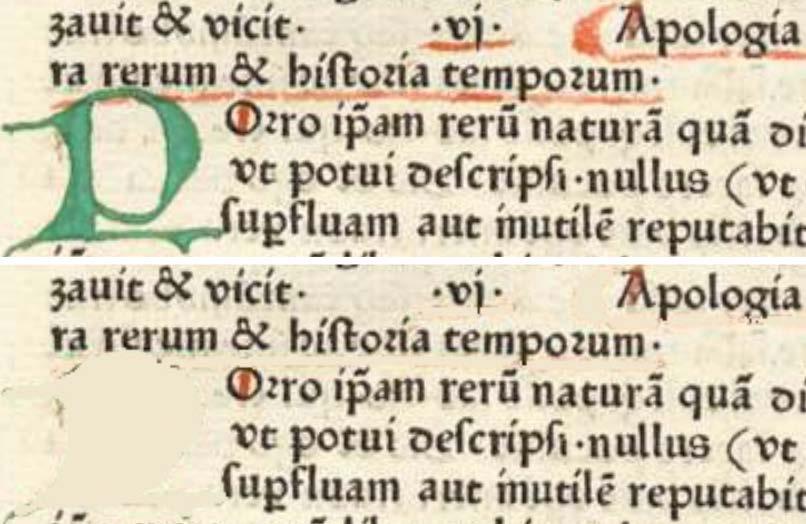 zauit & vicit· ·vj· Apologia
ra rerum & hiſtoria temporum·
POrro ip̃am rerũ naturã quã di
vt potui deſcripſi·nullus (vt
ſuꝑfluam aut inutilẽ reputabit
zauit & vicit· ·vj· Apologia
ra rerum & hiſtoria temporum·
Orro ip̃am rerũ naturã quã di
vt potui deſcripſi·nullus (vt
ſuꝑfluam aut inutilẽ reputabit